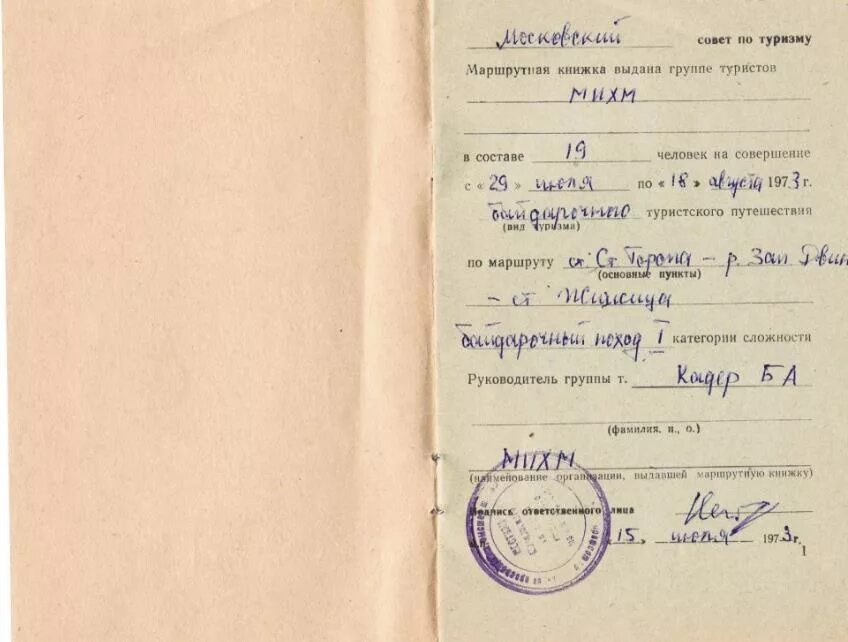 Московский совет по туризму
Маршрутная книжка выдана группе туристов
МИХМ
в составе 19 человек на совершение
с «29» июля по «18» августа 1973 г.
байдарочного туристского путешествия
(вид туризма)
по маршруту ст. Ст Торопа – р. Зап Двин
(основные пункты)
– ст Жижица
байдарочный поход I категории сложности
Руководитель группы т. Кадер Б А
(фамилия, и., о.)
МИХМ
(наименование организации, выдавшей маршрутную книжку)
Подпись ответственного лица
15 июля 1973 г.
1